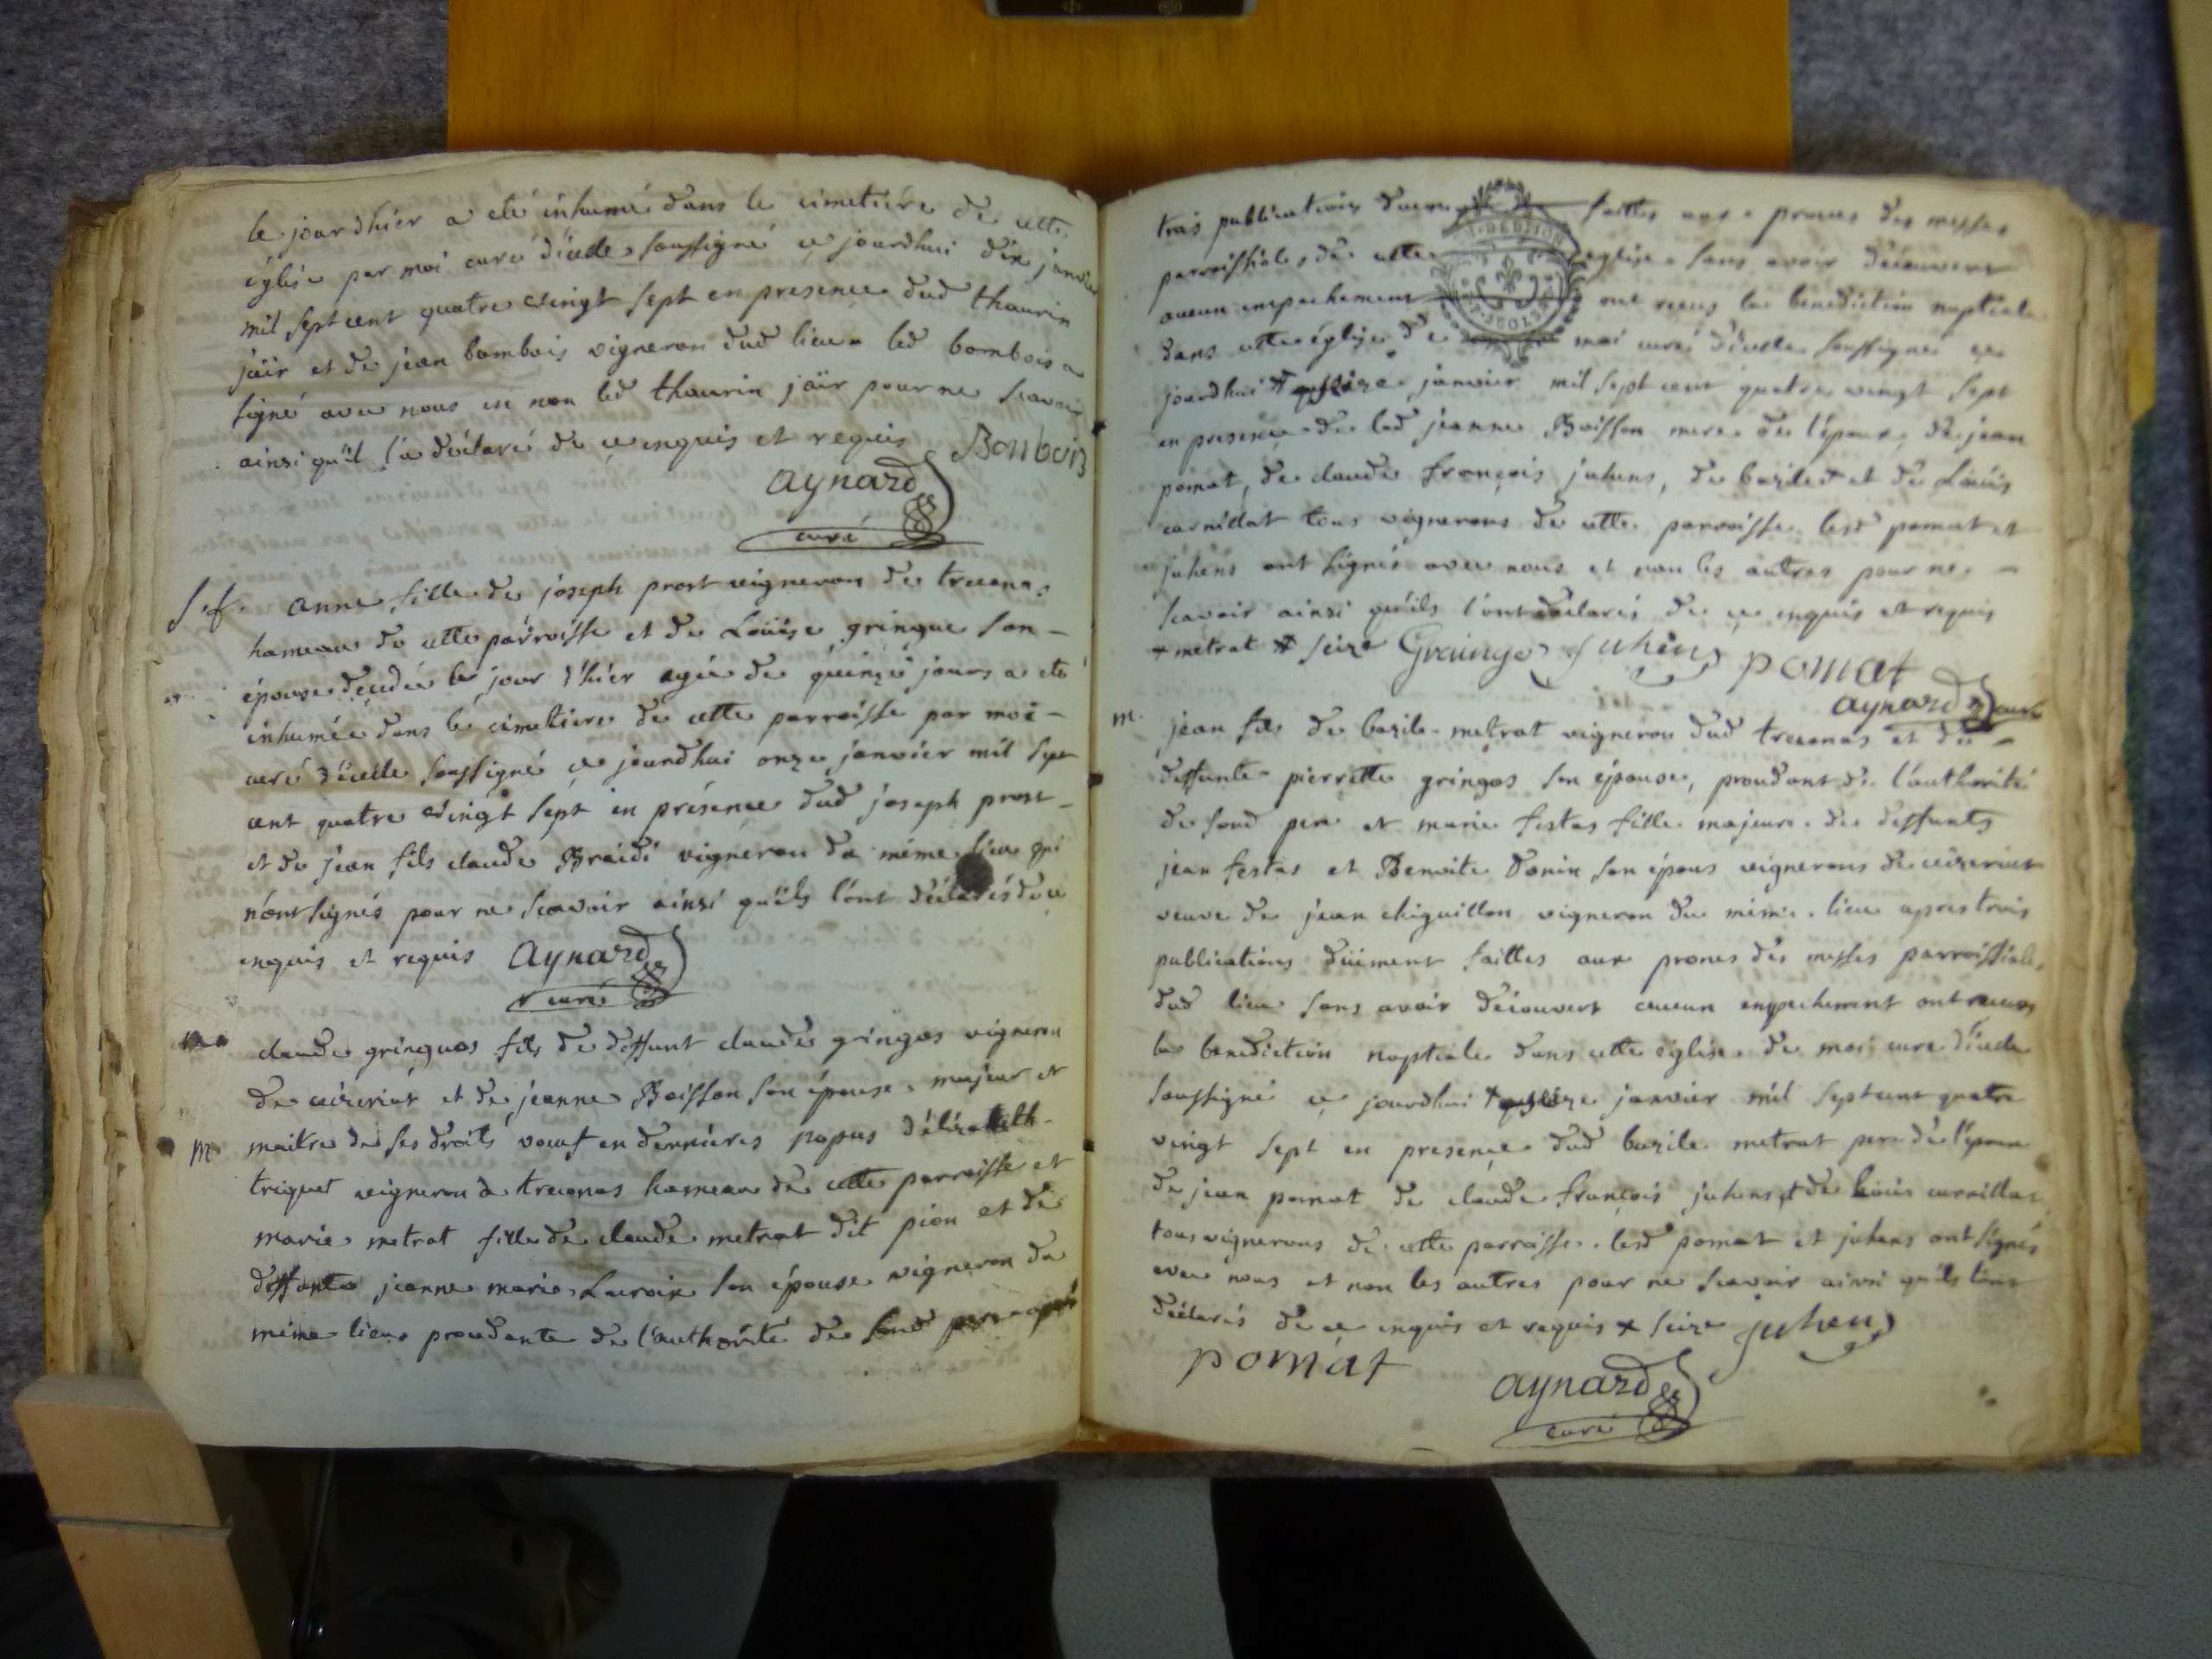 le jourdhier a eté inhumé dans le cimetiére de cette
église par moi curé d'icelle soussigné ce jourdhui dix janvier
mil sept cent quatre vingt sept en presence dud thaurin
jäir et de jean bombois vigneron dud lieu led bombois a
signé avec nous et non led thaurin jäir pour ne scavoir
ainsi qu'il l'a déclaré de ce enquis et requis Bonbois
aynard
curé
S.f. anne fille de joseph prost vigneron de treconas
hameau de cette parroisse et de Loüise gringue son
épouse décédée le jour d'hier agée de quinze jours a eté
inhumée dans le cimetiere de cette parroisse par moi
curé d'icelle soussigné ce jourdhui onze janvier mil sept
cent quatre vingt sept en présence dud joseph prost
et de jean fils claude Braidi vigneron du même lieu qui
n'ont signés pour ne scavoir ainsi qu'ils l'ont déclarés de ce
enquis et requis aynard
curé
m claude gringuos fils de deffunt claude gringos vigneron
de ceizeriat et de jeanne Boisson son épouse majeur et
m maitre de ses droits vœuf en dernieres nopces d'élizabeth
triquet vigneron de treconas hameau de cette parroisse et
marie metrat fille de claude metrat dit pion et de
deffunte jeanne marie Lacroix son épouse vigneron du
même lieu procedante de l'authorité de sond pere après
trois publications faittes aux prones des messes
parroissiales de cette église sans avoir découvert
aucun empechement ont recus la benediction nuptiale
dans cette église de moi curé d'icelle soussigné ce
jourdhui janvier mil sept cent quatre vingt sept
en presence de lad jeanne Boisson mere de l'époux, de jean
pomat, de claude françois juhens, de bazile + et de Loüis
carnillat tous vignerons de cette parroisse lesd pomat et
juhens ont signés avec nous et non les autres pour ne
scavoir ainsi qu'ils l'ont déclarés de ce enquis et requis
+ metrat + seize juhens pomat
aynard curé
m. jean fils de bazile metrat vigneron dud treconas et de
deffunte pierrette gringos son épouse, procedant de l'authorité
de sond pere et marie festas fille majeure de deffunts
jean festas et Benoite Donin son épous vignerons de ceizeriat
veuve de jean chiguillon vigneron du même lieu apres trois
publications düiment faittes aux prones des messes parroissiales
dud lieu sans avoir découvert aucun enpechement ont recus
la benediction nuptiale dans cette église de moi curé d'icelle
soussigné ce jourdhui janvier mil sept cent quatre
vingt sept en presence dud bazile metrat pere de l'époux
de jean pomat de claude françois juhens et de loüis carnillat
tous vignerons de cette parroisse lesd pomat et juhens ont signés
avec nous et non les autres pour ne scavoir ainsi qu'ils l'ont
déclarés de ce enquis et requis + seize juhens
pomat
aynard
curé